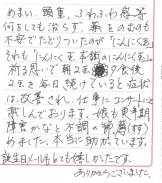 めまい、頭重、ふわふわ感等
何をしても治らず、薬をのむのも
不安でたどりついたのが「にんにく玉」
それも「にんにく玉本舗のにんにく玉
祈る思いで朝2玉 夕食後
2玉を毎日続けていると症状
は改善され、仕事にコンサートにと
楽しんでおります。娘も更年期
障害かなと不調の時購(すす)
めました。本当に助かっています。
誕生日メール等とても嬉しかったです。
ありがとうございました。